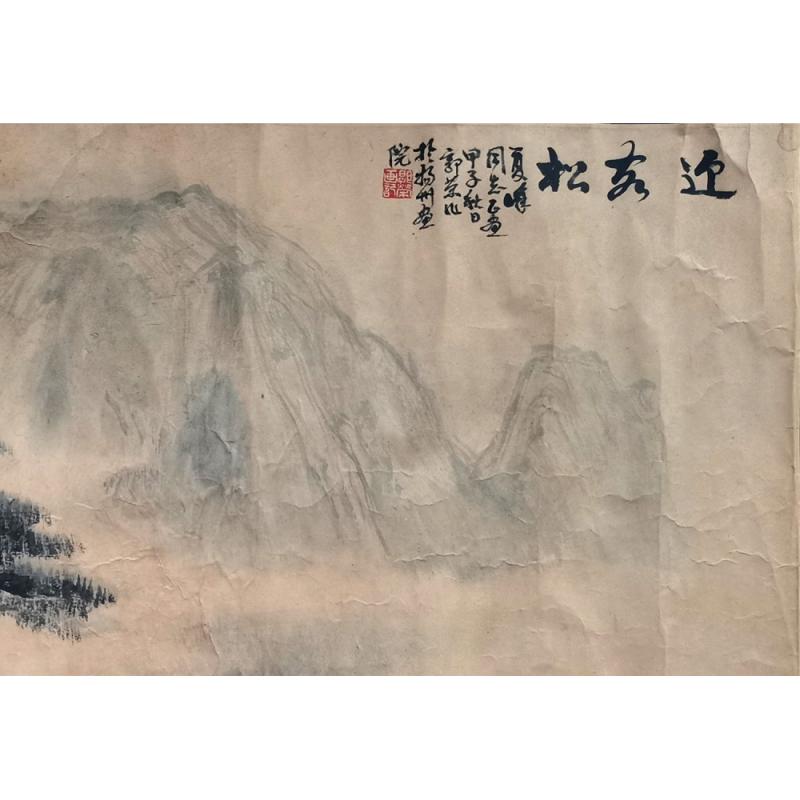 迎客松
夏峰
同志正画
甲子秋日
郭荣作
於扬州画
院